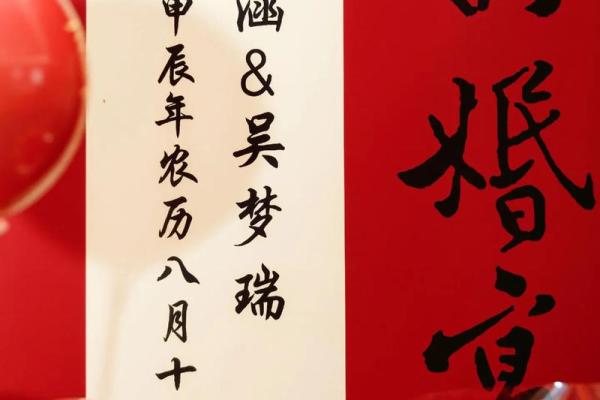 的婚宴
涵&吴梦瑞
甲辰年农历八月十